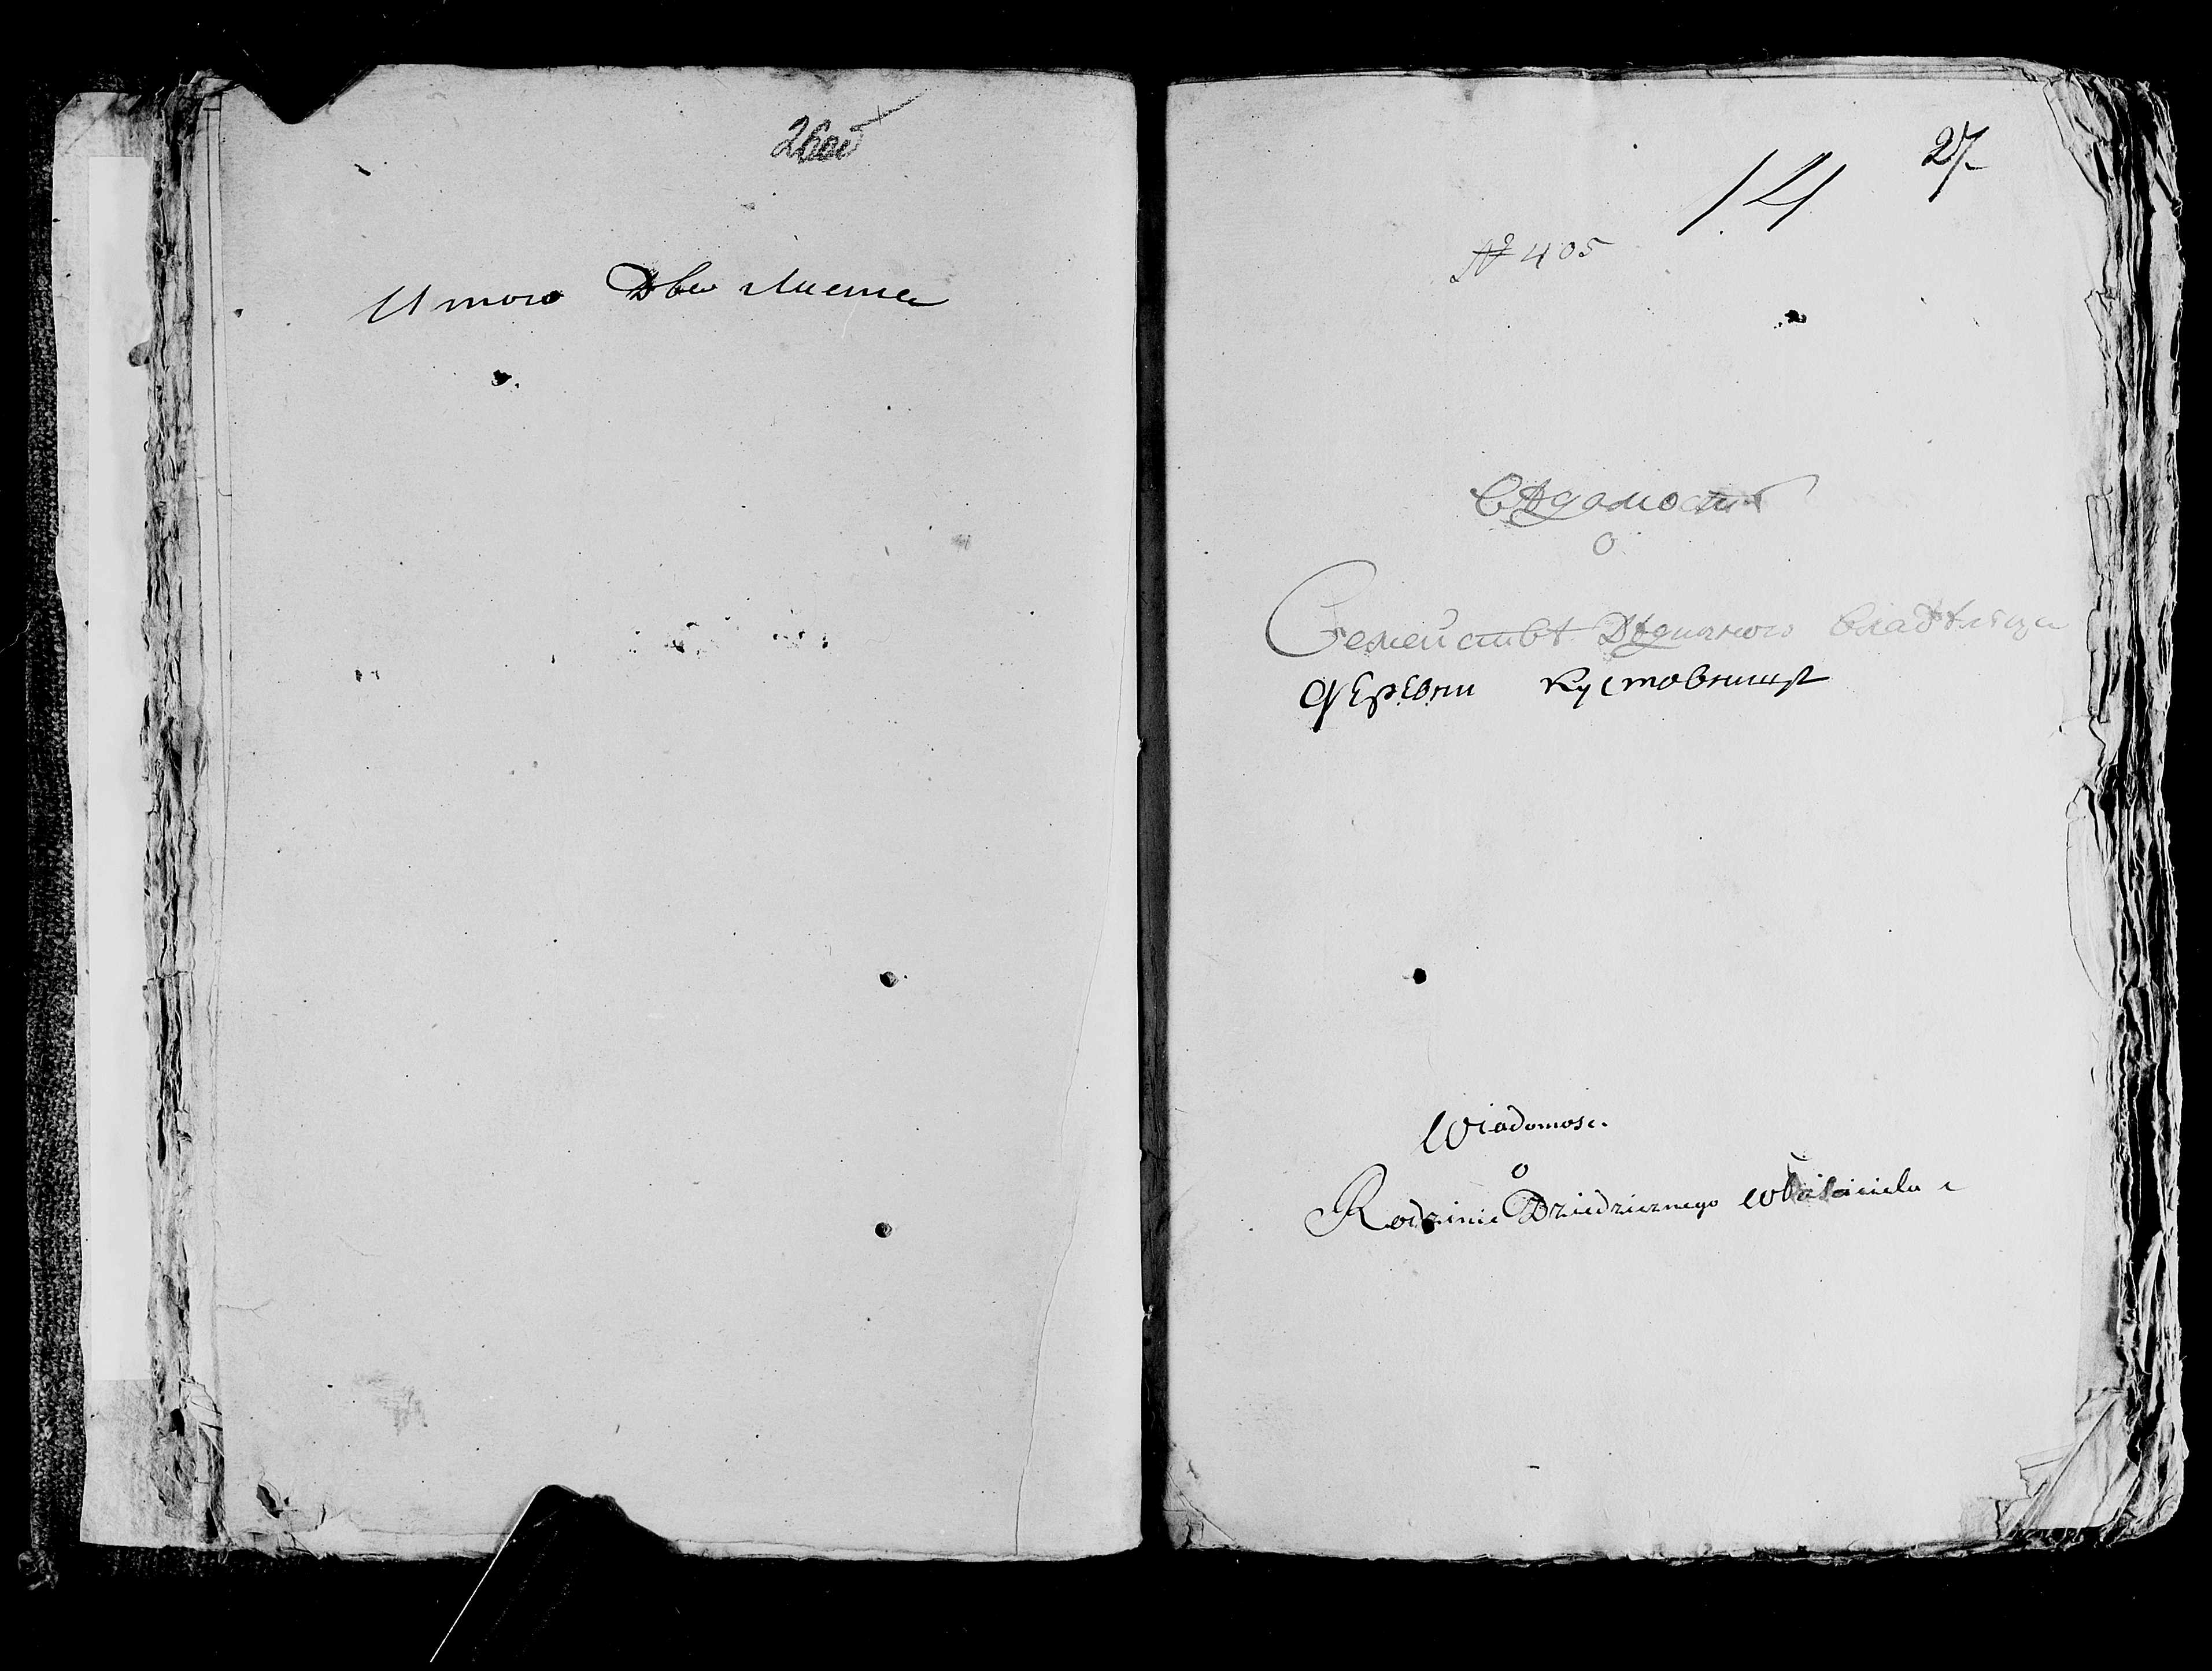 26об
Итого Два Листа
27
14
№ 405
Вѣдомость
О
Семействѣ Дѣдичного владѣльца
деревни Кустовницѣ
Wiadomosc
o
Rodzinie Dziedzicznego właściciela